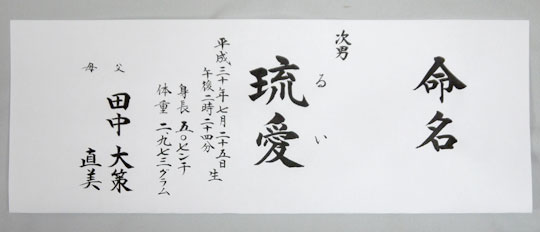 命名
次男
琉愛
るい
平成三十年七月二十五日生
午後二時二十四分
身長 五〇センチ
体重 二九七三グラム
父 田中 大策
母 直美